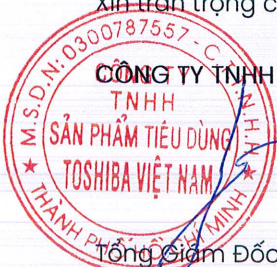 Xin trân trọng c
CÔNG TY TNHH
M.S.D.N: 0300787557 - C.T.T.N.H.H
CÔNG TY
TNHH
SẢN PHẨM TIÊU DÙNG
TOSHIBA VIỆT NAM
THÀNH PHỐ HỒ CHÍ MINH
Tổng Giám Đốc